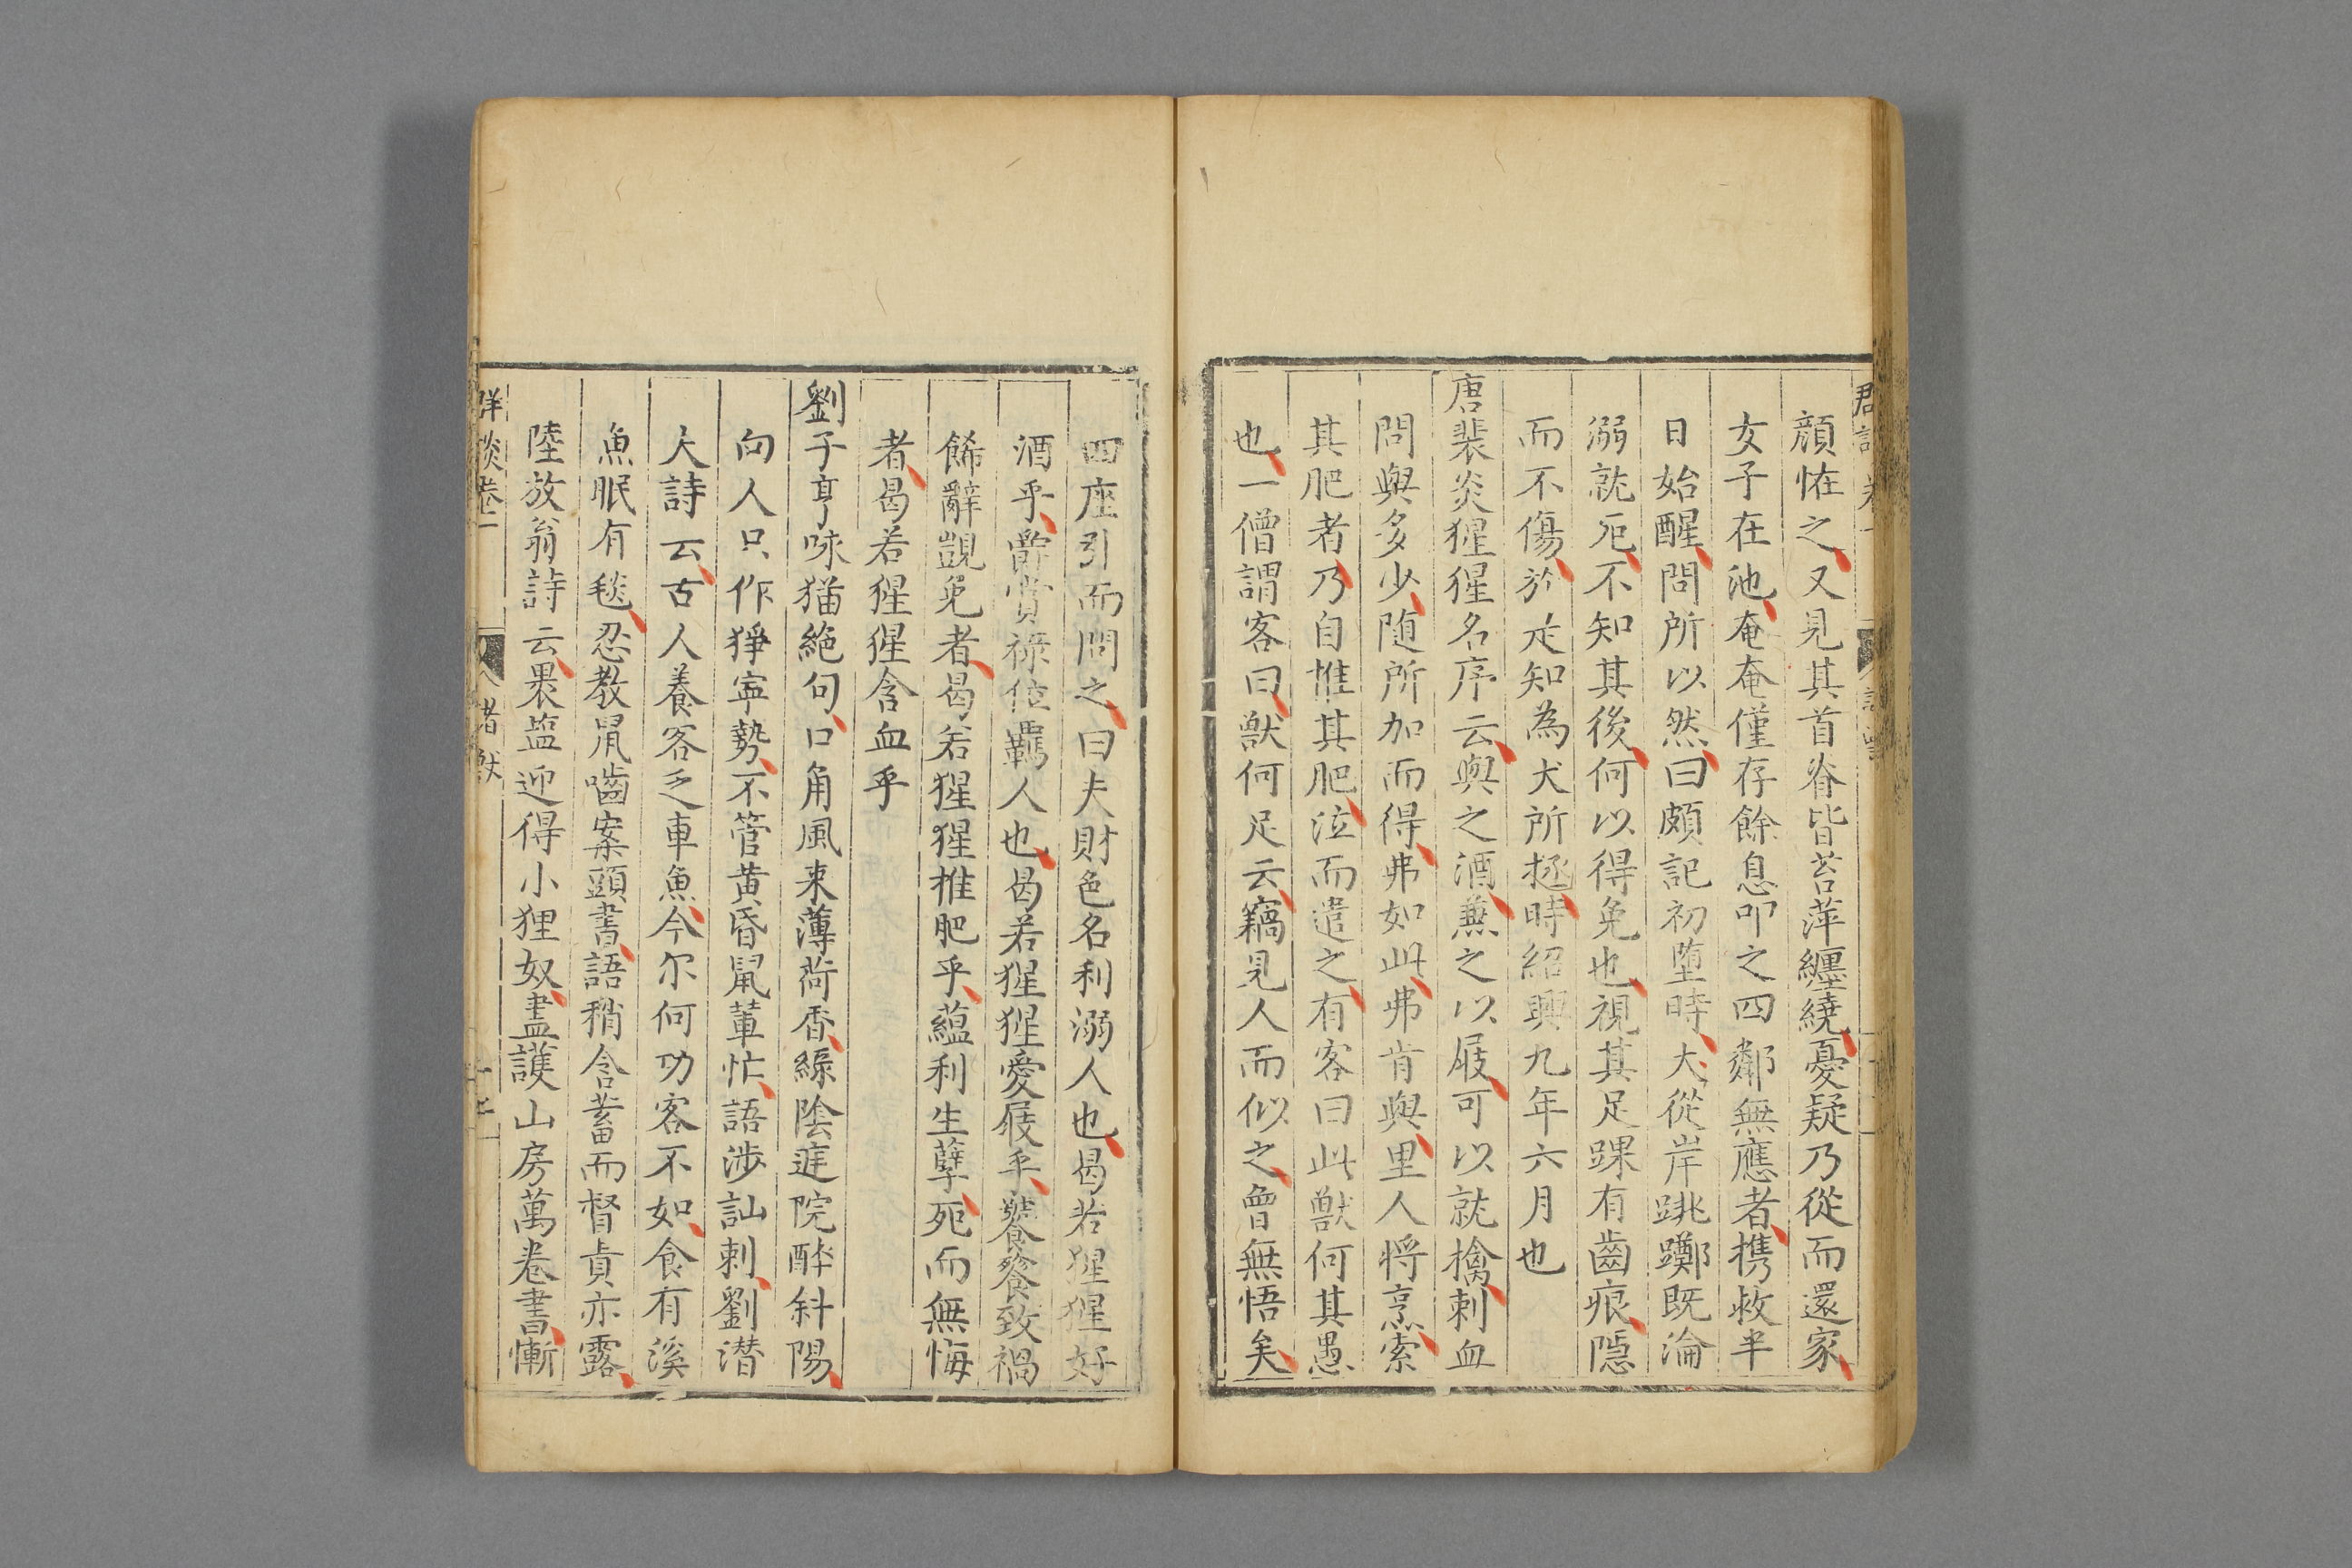 顔恠之又見其首脊皆苔萍纒繞憂疑乃從而還家
女子在池奄奄僅存餘息叩之四鄰無應者携救半
日始醒問所以然曰頗記初墮時犬從岸跳躑既淪
溺就死不知其後何以得免也視其足踝有齒痕隱
而不傷於是知為犬所拯時紹興九年六月也
唐裴炎猩猩名序云與之酒兼之以屐可以就擒刺血
問與多少随所加而得弗如此弗肯與里人将烹索
其肥者乃自推其肥泣而遣之有客曰此獸何其愚
也一僧謂客曰獸何足云竊見人而似之會無悟矣
四座引而問之曰夫財色名利溺人也曷若猩猩好
酒乎爵賞祿位羈人也曷若猩猩愛屐乎饕餮致禍
餙辭覬免者曷若猩猩推肥乎蘊利生孽死而無悔
者曷若猩猩含血乎
劉子亨咏猫絶句口角風来薄荷香緑陰庭院醉斜陽
向人只作猙寧勢不管黄昏鼠輩忙語涉訕刺劉潜
夫詩云古人養客乏車魚今尔何功客不如食有溪
魚眠有毯忍教鼠嚙案頭書語稍含蓄而督責亦露
陸放翁詩云裹盐迎得小狸奴盡護山房萬卷書慚
群談卷一